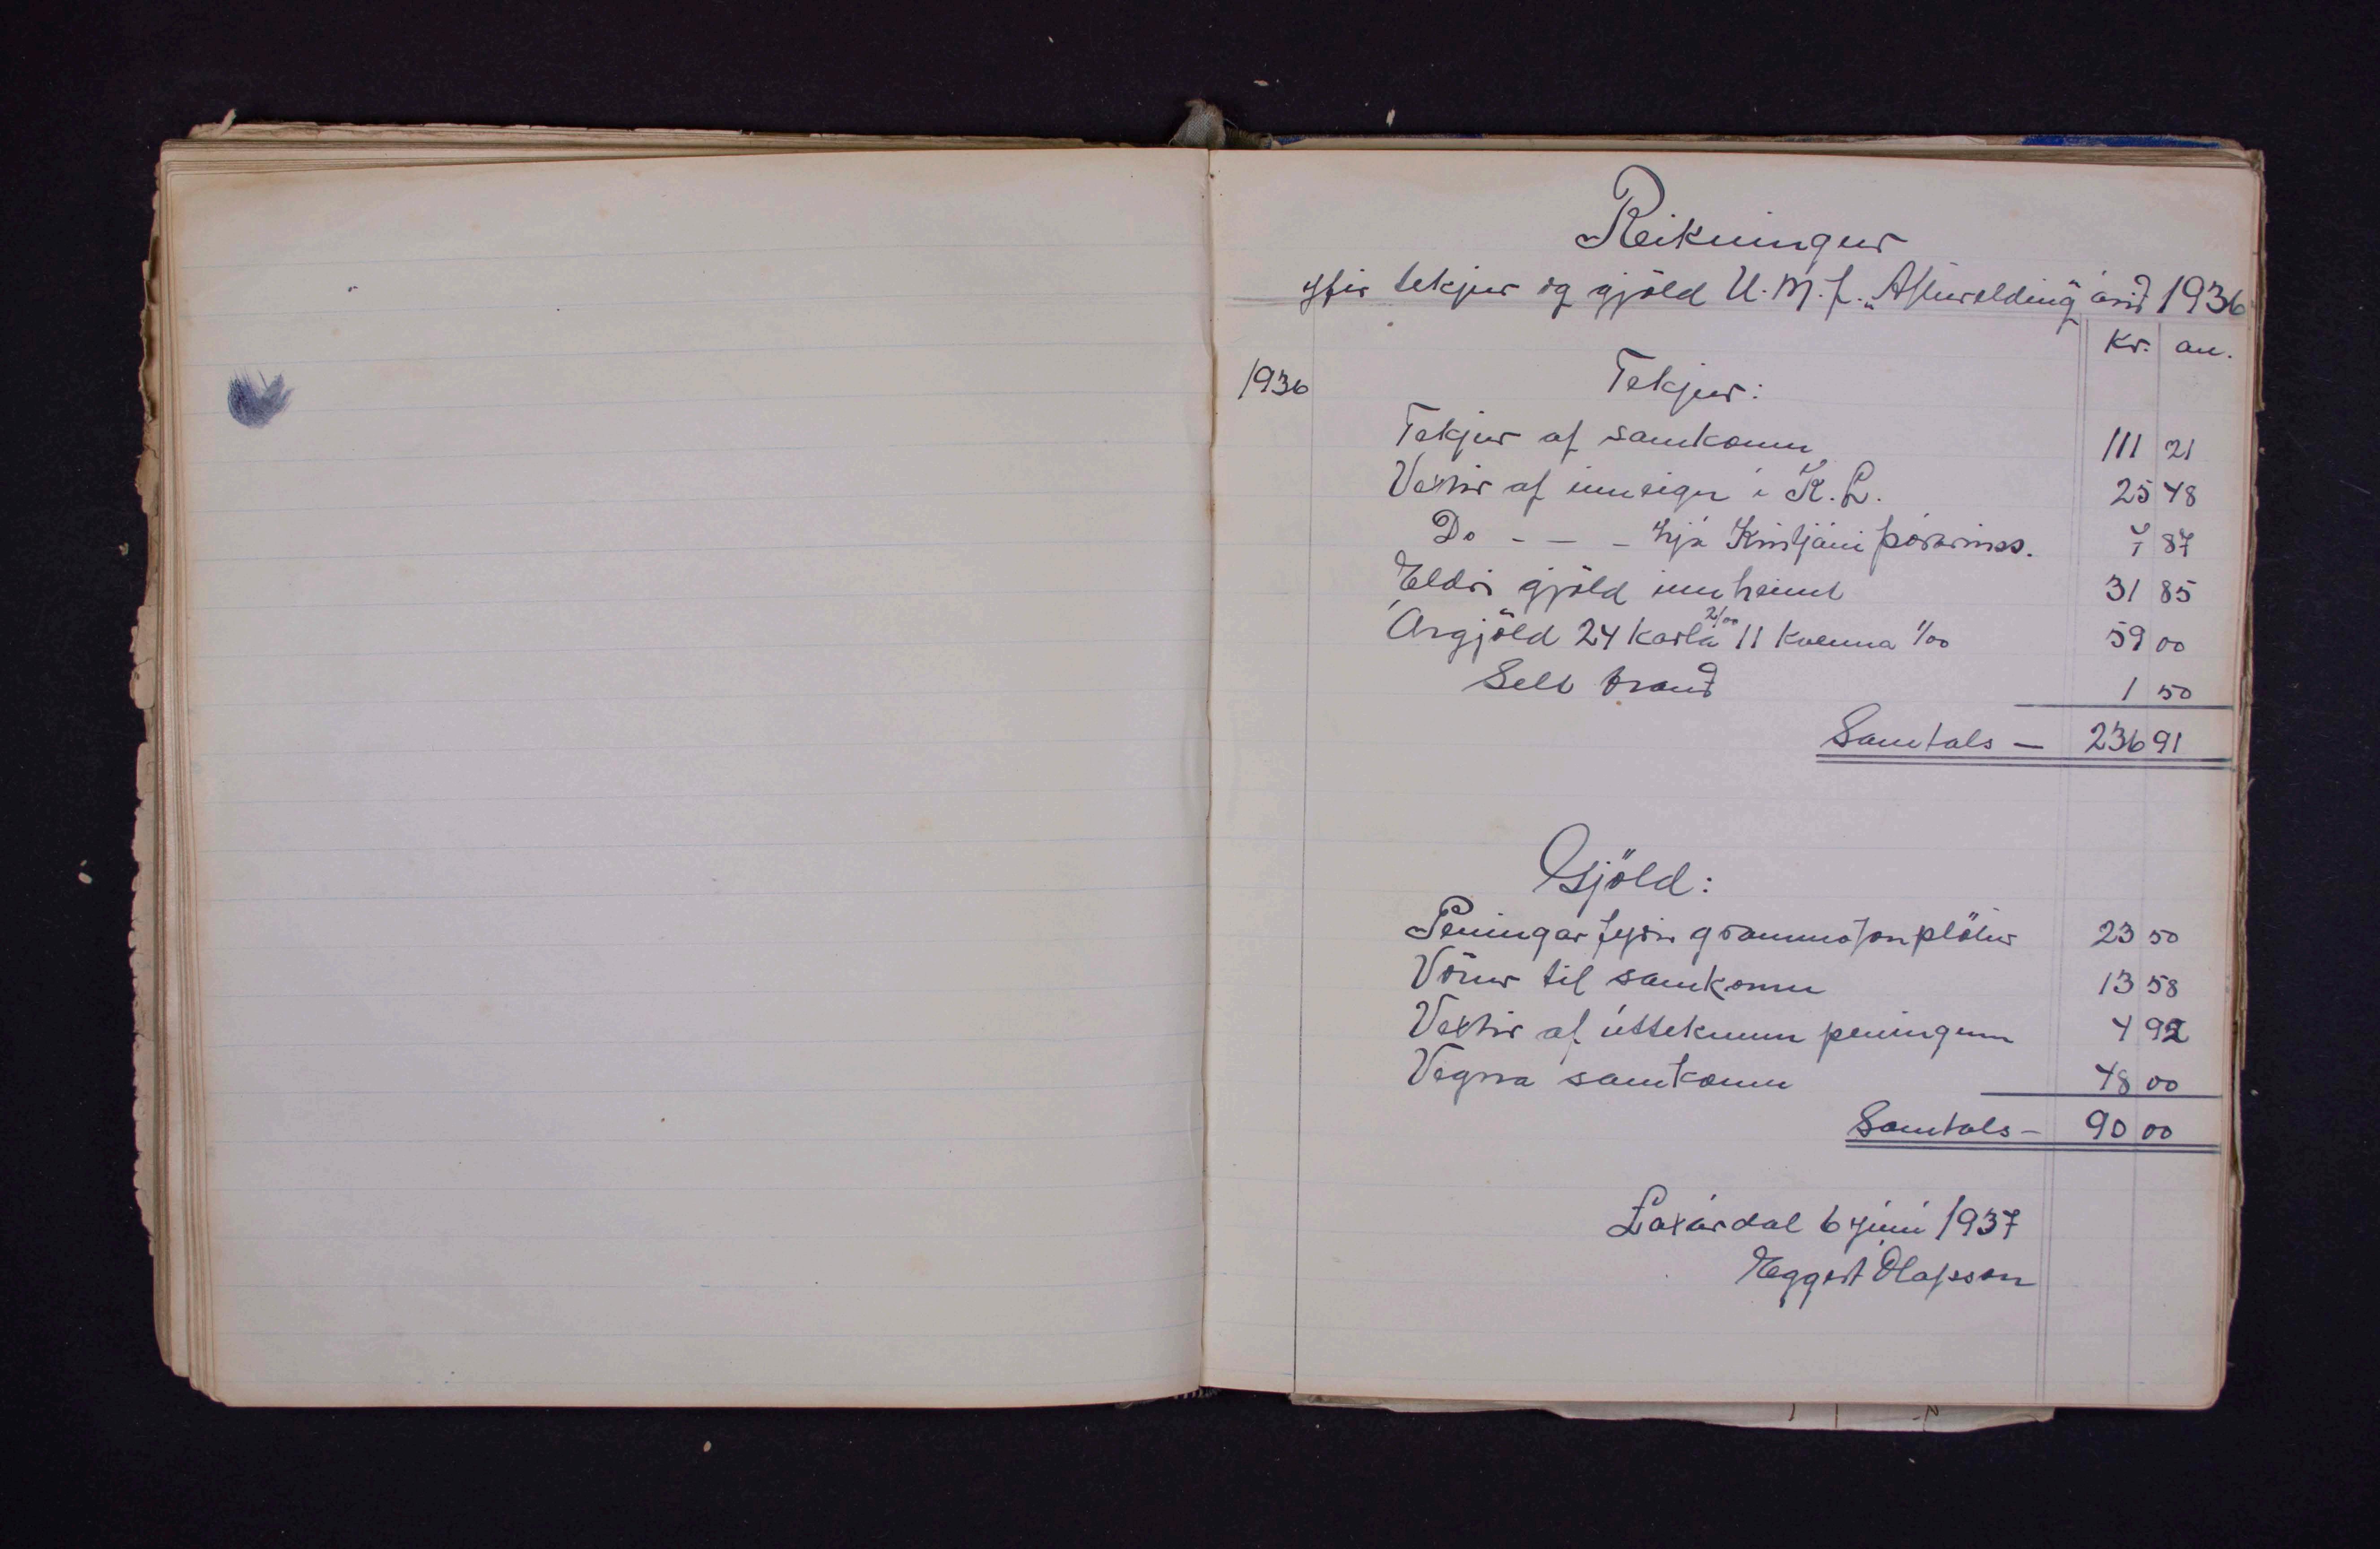 Reikningur
yfir tekjur og gjöld U.M.f. „Afturelding" árið 1936
Kr. au.
1936 Tekjur:
Tekjur af samkomu 111 21
Vextir af inneign í K.L. 25 48
Do - - - hjá Kristjáni Þórarinss. 7 87
Eldri gjöld innheimt 31 85
Árgjöld 24 karla 2/00 11 kvenna 1/00 59 00
Selt brauð 1 50
Samtals — 236 91
Gjöld:
Peningar fyrir grammofonplötur 23 50
Vörur til samkomu 13 58
Vextir af útteknum peningum 4 92
Vegna samkomu 48 00
Samtals — 90 00
Laxárdal 6 júní 1937
Eggert Ólafsson